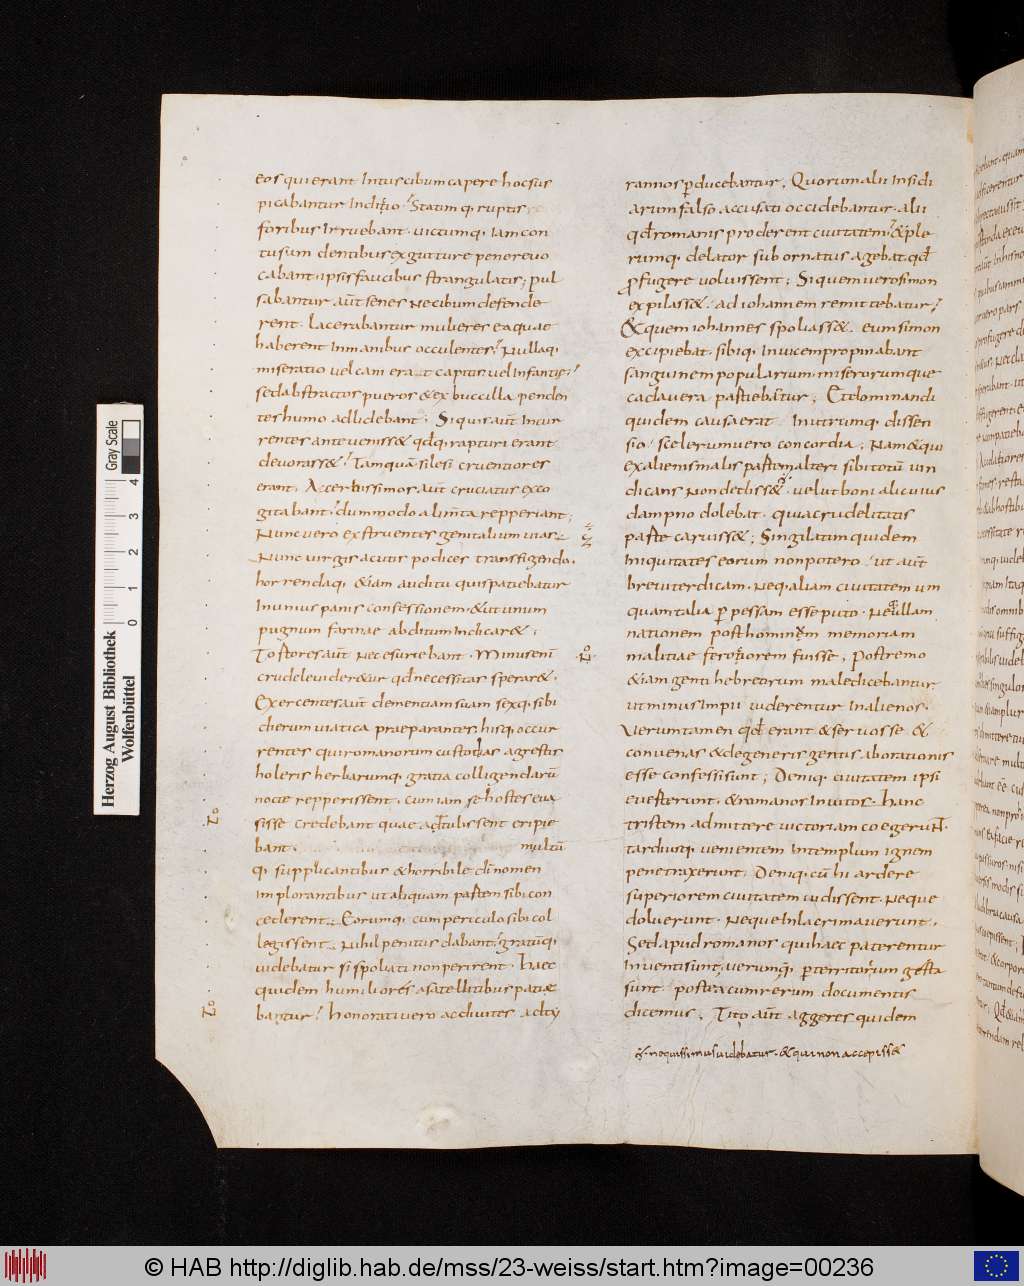 eos qui erant Intus cibum capere hoc sus
picabantur Inditio. Statimq; ruptis
foribus Irruebant. uictumq; Iam con
tusum dentibus ex gutture pene reuo
cabant. ipsis faucibus strangulatis; pul
sabantur aut̄ senes Ne cibum defende
rent. lacerabantur mulieres ea quae
haberent In manibus occulentes. Nullaq;
miseratio uel cani erat captus uel Infantis.
sed abstractos pueros & ex buccilla penden
tes humo adlidebant; Si quis aut̄ Incur
rentes anteueniss& qd̄q; rapturi erant
deuorass&. Tamquā si lesi cruentiores
erant. Acerbissimos aut̄ cruciatus exco
gitabant. dummodo alimta repperiant;
Nunc uero exstruentes genitalium uias.
Nunc uirgis acutis podices transfigendo.
horrendaq; &iam auditu quis patiebatur
In unius panis confessionem & ut unum
pugnum farinae abditum Indicar&;
Tostores aut̄ Nec esuriebant. Minus enī
crudele uider&ur qd̄ necessitas sperar&.
Exercentes aut̄ dementiam suam sexq; sibi
dierum uiatica praeparantes. hisq; occur
rentes qui romanorum custodias agrestis
holeris herbarumq; gratia colligendarū
nocte repperissent. cum iam se hostes eua
sisse credebant quae adtulissent eripie
bant. multū
q; supplicantibus & horribile dī nomen
implorantibus ut aliquam partem sibi con
cederent. Eorumq; cum periculo sibi col
legissent. Nihil penitus dabant. gratūq;
uidebatur si spoliati non perirent. haec
quidem humiliores a satellitibus patie
bantur. honorati uero ac diuites ad ty
rannos p̄ducebantur. Quorum alii Insidi
arum falso accusati occidebantur. alii
qd̄ romanis proderent ciuitatem. & ple
rumq; delator subornatus agebat. qd̄
profugere uoluissent; Si quem uero simon
expilass&. ad iohannem remittebatur.
& quem iohannes spoliass&. eum simon
excipiebat. sibiq; Inuicem propinabant
sanguinem popularium. miserorumque
cadauera pastiebatur; Et dominandi
quidem causa erat Inutrumq; dissen
sio. scelerum uero concordia; Nam & qui
ex alienis malis partem alteri sibi totū uin
dicans Non dediss&. uelut boni alicuius
dampno dolebat. quia crudelitatis
parte caruiss&; Singilatim quidem
Iniquitates eorum non potero. ut aut̄
breuiter dicam. Neq; aliam ciuitatem um
quam talia p̄pessam esse puto. Ne ullam
nationem post hominum memoriam
malitiae ferotiorem fuisse; Postremo
&iam genti hebreorum maledicebantur.
ut minus Impii uiderentur In alienos.
Verumtamen qd̄ erant & seruos se &
conuenas & degeneris gentis abortationis
esse confessi sunt; Deniq; ciuitatem ipsi
euesterunt. & romanos Inuitos. hanc
tristem admittere uictoriam coegerunt.
tardiusq; uenientem In templum ignem
penetraxerunt. Deniq; cū hi ardere
superiorem ciuitatem uidissent. Neque
doluerunt. Neque Inlacrimauerunt.
Sed apud romanos qui haec paterentur
Inuenti sunt. uerumq̄; p̄ territorium gesta
sunt. postea cum rerum documentis
dicemus; Tito aut̄ aggeres quidem
nequissimus uidebatur. & qui non accepiss&
Herzog August Bibliothek
Wolfenbüttel
Gray Scale
0 1 2 3 4
© HAB http://diglib.hab.de/mss/23-weiss/start.htm?image=00236